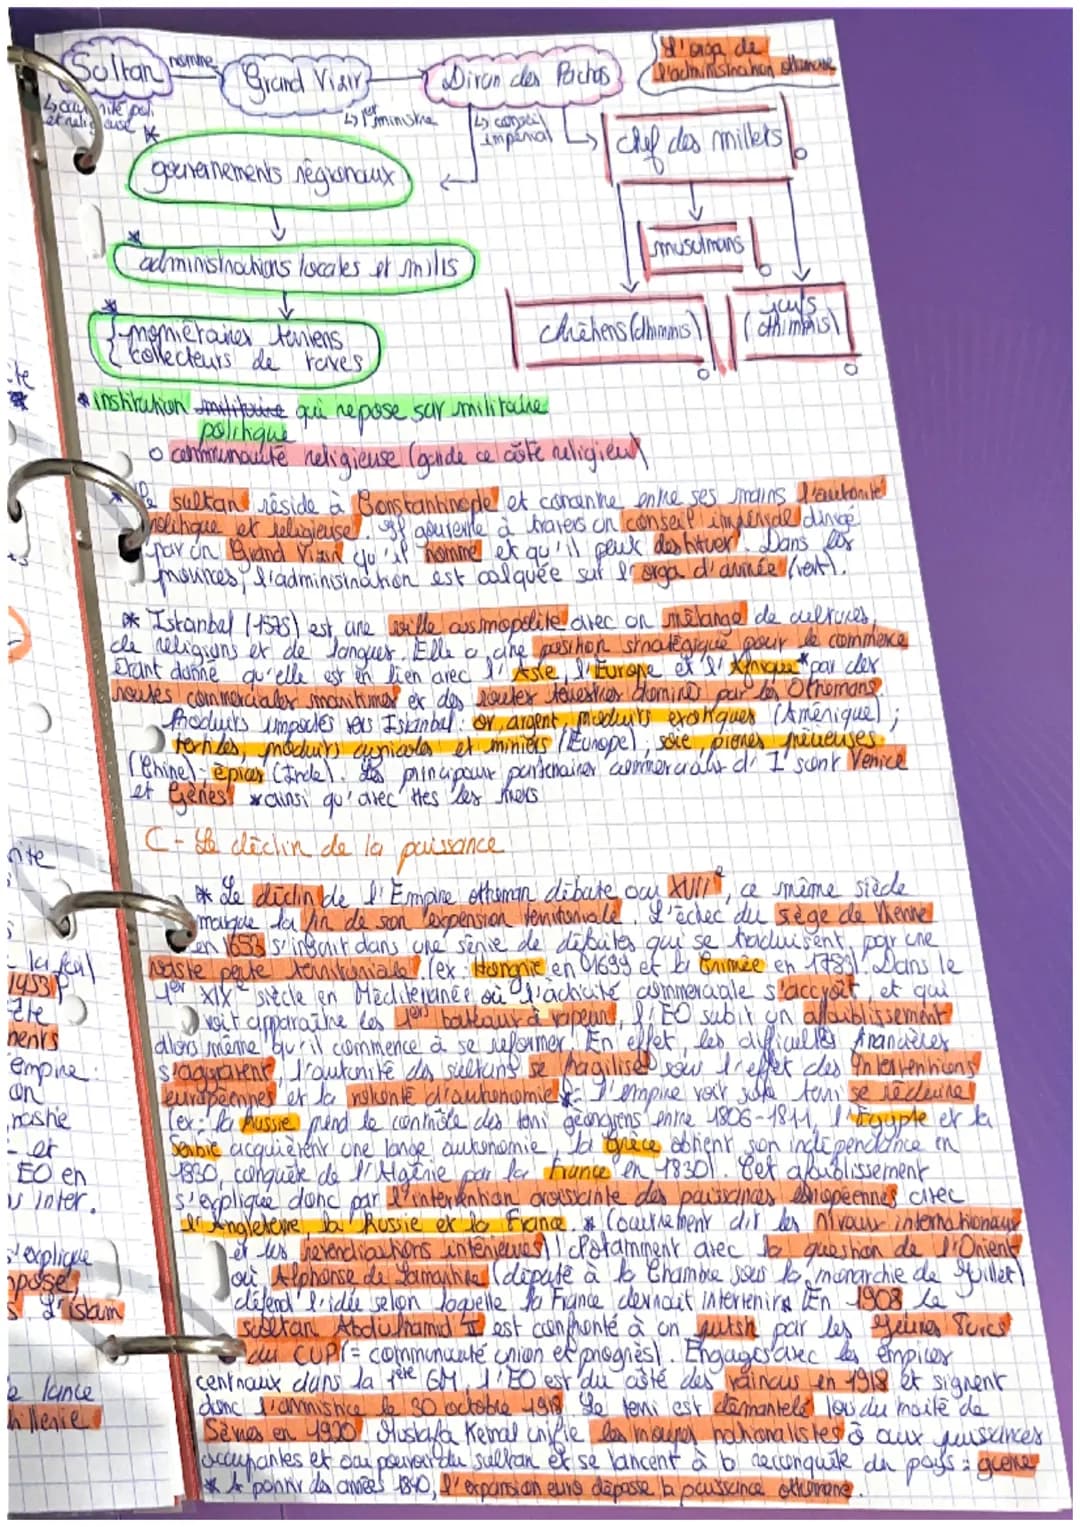 L'orga de
l'administration ottomane
Sultan nomme Grand Vizir Divan des Pachas
↳ autorité poli
et religieuse
↳ 1er ministre
↳ conseil
impérial
* gouvernements régionaux
chef des millets
musulmans
* administrations locales et milis
chrétiens (dhimmis)
juifs
(dhimmis)
* propriétaires terriens
collecteurs de taxes
* institution militaire qui repose sur militaire
politique
o communauté religieuse (garde ce côté religieux)
* Le sultan réside à Constantinople et concentre entre ses mains l'autorité
politique et religieuse. Il gouverne à travers un conseil impérial dirigé
par un Grand Vizir qu'il nomme et qu'il peut destituer. Dans les
provinces, l'administration est calquée sur l'orga d'armée (vert).
* Istanbul (1575) est une ville cosmopolite avec un mélange de cultures,
de religions et de langues. Elle a une position stratégique pour le commerce
étant donné qu'elle est en lien avec l'Asie, l'Europe et l'Afrique* par des
routes commerciales maritimes et des routes terrestres dominés par les Othomans.
Produits importés vers Istanbul : or, argent, produits exotiques (Amérique) ;
textiles, produits agricoles et miniers (Europe), soie, pierres précieuses
(Chine) ; épices (Inde). Les principaux partenaires commerciaux d'I sont Venise
et Gènes * ainsi qu'avec ttes les mers
C - Le déclin de la puissance
* Le déclin de l'Empire ottoman débute au XVIIe, ce même siècle
marque la fin de son expension territoriale. L'échec du siège de Vienne
en 1683 s'inscrit dans une série de défaites qui se traduisent par une
vaste perte territoriale. (ex : Hongrie en 1699 et la Crimée en 1783). Dans le
1er XIXe siècle en Méditerranée où l'activité commerciale s'accroît, et qui
voit apparaître les 1ers bateaux à vapeur, l'EO subit un affaiblissement
alors même qu'il commence à se reformer. En effet, les difficultés financières
s'aggravent, l'autorité des sultans se fragilise sous l'effet des interventions
européennes et la volonté d'autonomie * l'empire voit son terri se réduire
(ex : la Russie prend le contrôle des terri géorgiens entre 1806-1811, l'Egypte et la
Serbie acquièrent une large autonomie, la Grèce obtient son indépendance en
1830, conquête de l'Algérie par la France en 1830). Cet affaiblissement
s'explique donc par l'intervention croissante des puissances européennes avec
l'Angleterre la Russie et la France. * (autrement dit les rivaux internationaux
et les revendications intérieures) Notamment avec la question de l'Orient
où Alphonse de Lamartine (député à la Chambre sous la monarchie de Juillet)
défend l'idée selon laquelle la France devrait intervenir. En 1908 le
sultan Abdulhamid II est confronté à un putsh par les Jeunes Turcs
du CUP (= communauté union et progrès). Engagés avec les empires
centraux dans la 1ère GM, l'EO est du côté des vaincus en 1918 et signent
donc l'armistice le 30 octobre 1918. Le terri est démantelé lors du traité de
Sèvres en 1920. Mustafa Kemal unifie les troupes nationalistes à aux puissances
occupantes et au pouvoir du sultan et se lancent à la reconquête du pays : guerre
* A partir des années 1840, l'expansion euro dépasse la puissance ottomane.
la foi
1453
empire.
on
et
EO en
s inter.
s'explique
L'islam
lance